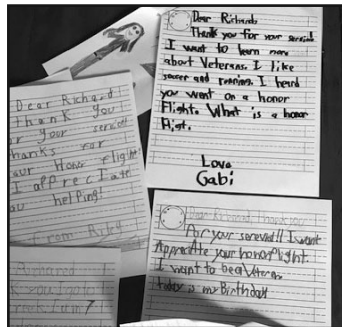 Dear Richard,
Thank you for your service!
I want to learn more
about Veterans. I like
soccer and running. I heard
you went on a honor
Flight. What is a honor
Flight.
Love
Gabi
Dear Richard
Thank you
or your service!
hanks for
our Honor flight!
I appreciate
ou helping!
From Riley
Dear Richard, Thank you
For your servied!! I want
Appreciate your honor flight.
I want to be a Veteran
today is my Birthday!
Richared